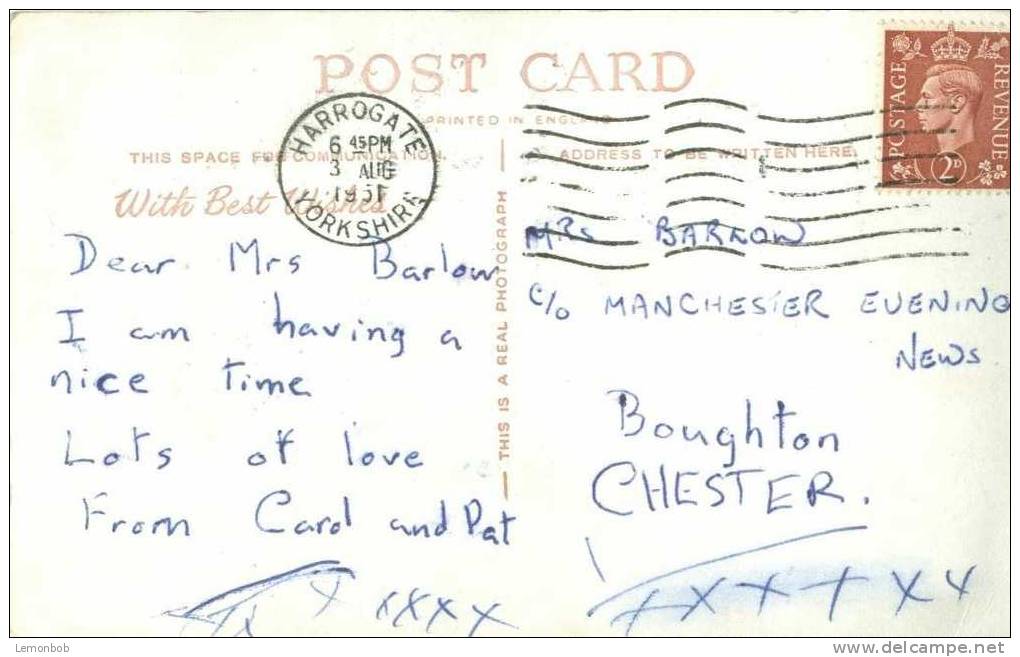 POST CARD
PRINTED IN ENGLAND
THIS SPACE FOR COMMUNICATION.
ADDRESS TO BE WRITTEN HERE.
With Best Wishes
HARROGATE
6 45 PM
3 AUG
1951
YORKSHIRE
POSTAGE
REVENUE
2D
Dear Mrs Barlow
I am having a
nice time
Lots of love
From Carol and Pat
xx x xxxx
THIS IS A REAL PHOTOGRAPH
MRS BARLOW
c/o MANCHESTER EVENING
NEWS
Boughton
CHESTER.
xxxxxx
Lemonbob
www.delcampe.net